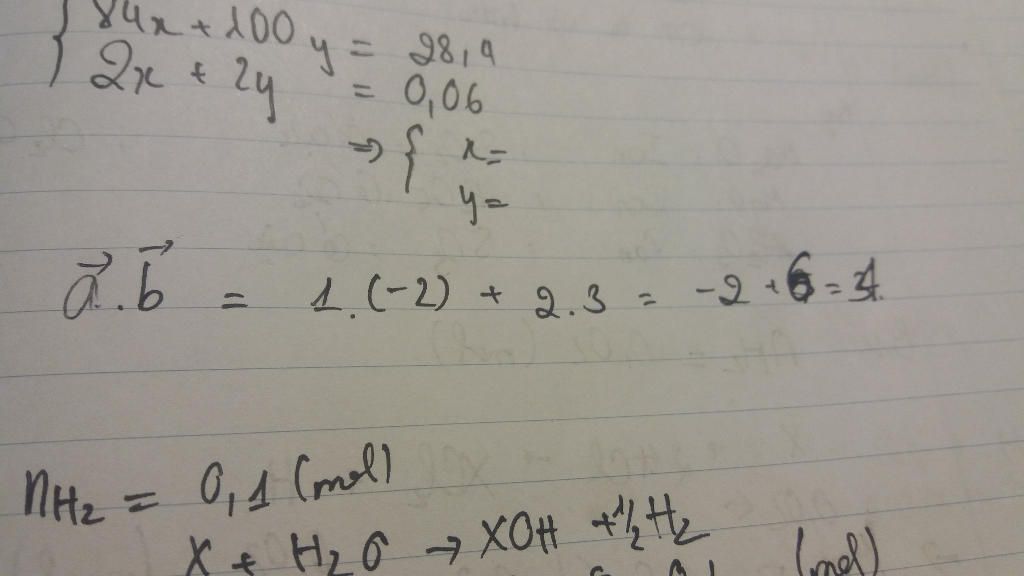 84x + 100y = 28,4
2x + 2y = 0,06
⇒ { x =
y =
a⃗.b⃗ = 1.(-2) + 2.3 = -2 + 6 = 4.
nH₂ = 0,1 (mol)
X + H₂O → XOH + 1/2 H₂
(mol)